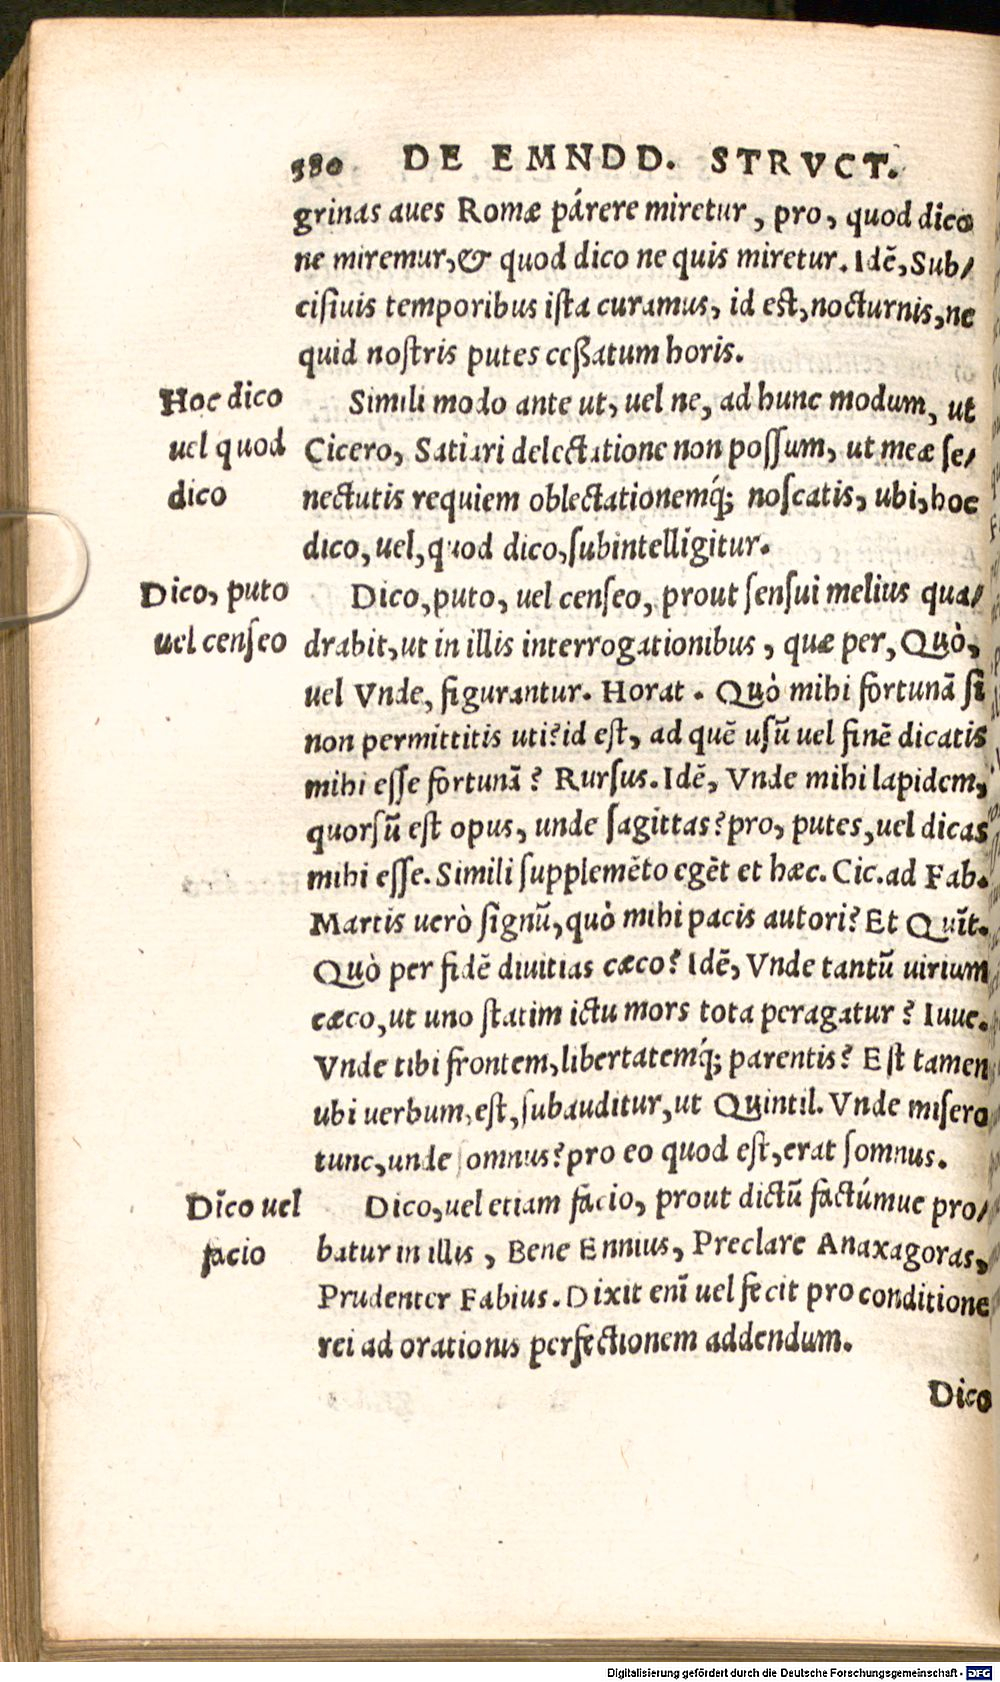 380 DE EMNDD. STRVCT.
grinas aues Romæ párere miretur, pro, quod dico
ne miremur, & quod dico ne quis miretur. Idē, Sub/
cisiuis temporibus ista curamus, id est, nocturnis, ne
quid nostris putes ceßatum horis.
Hoc dico
uel quod
dico
Simili modo ante ut, uel ne, ad hunc modum, ut
Cicero, Satiari delectatione non possum, ut meæ se/
nectutis requiem oblectationemq́; noscatis, ubi, hoc
dico, uel, quod dico, subintelligitur.
Dico, puto
uel censeo
Dico, puto, uel censeo, prout sensui melius qua/
drabit, ut in illis interrogationibus, quæ per, Quò,
uel Vnde, figurantur. Horat. Quò mihi fortunā si
non permittitis uti? id est, ad quē usū uel finē dicatis
mihi esse fortunā? Rursus. Idē, Vnde mihi lapidem,
quorsū est opus, unde sagittas? pro, putes, uel dicas
mihi esse. Simili supplemēto egēt et hæc. Cic. ad Fab.
Martis uerò signū, quò mihi pacis autori? Et Quīt.
Quò per fidē diuitias cæco? Idē, Vnde tantū uirium
cæco, ut uno statim ictu mors tota peragatur? Iuue.
Vnde tibi frontem, libertatemq́; parentis? Est tamen
ubi uerbum, est, subauditur, ut Quintil. Vnde misero
tunc, unde somnus? pro eo quod est, erat somnus.
Dico uel
facio
Dico, uel etiam facio, prout dictū factúmue pro/
batur in illis, Bene Ennius, Preclare Anaxagoras,
Prudenter Fabius. Dixit enī uel fecit pro conditione
rei ad orationis perfectionem addendum.
Dico
Digitalisierung gefördert durch die Deutsche Forschungsgemeinschaft - DFG